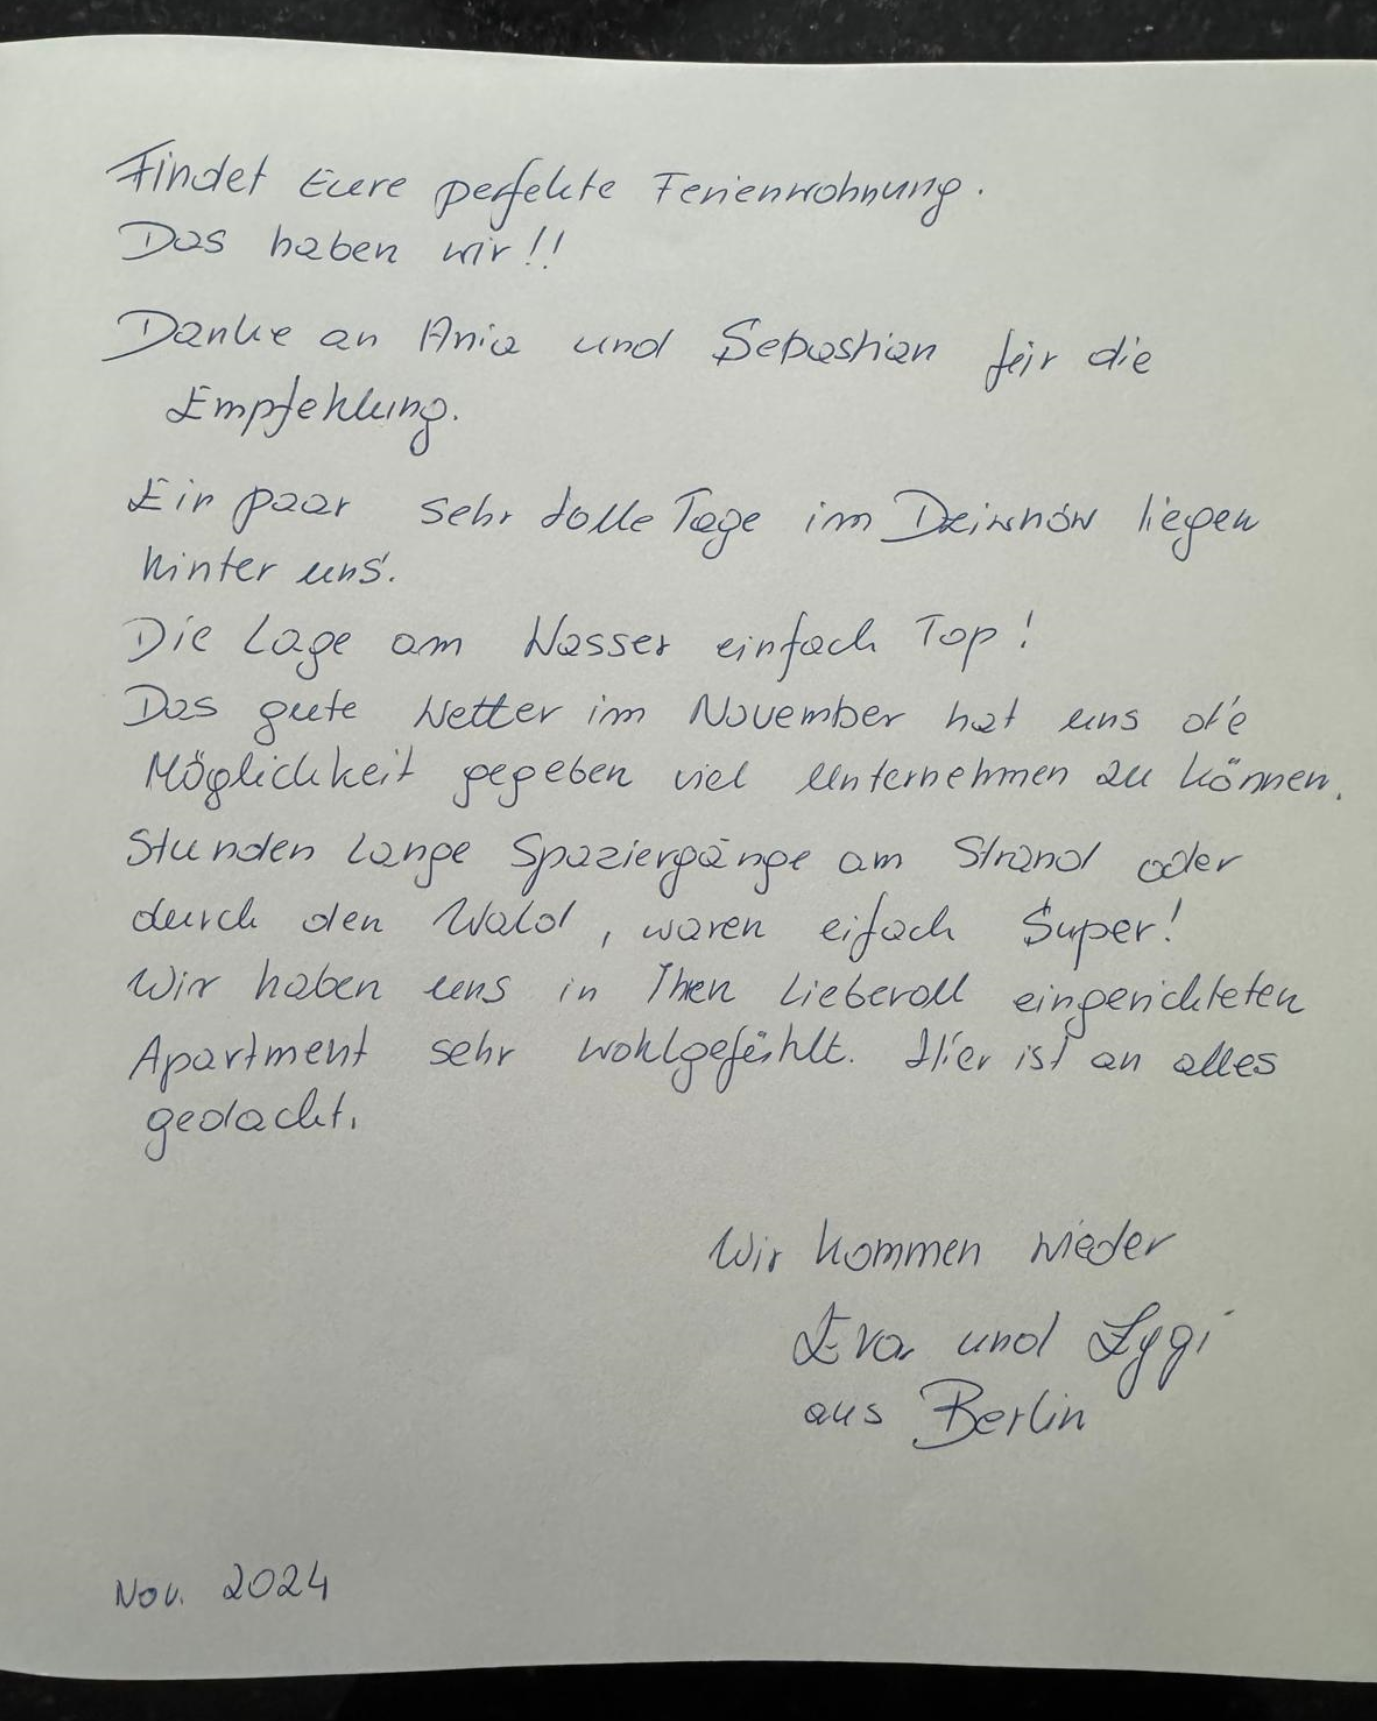 Findet Eure perfekte Ferienwohnung.
Das haben wir!!
Danke an Ania und Sebastian für die
Empfehlung.
Ein paar sehr tolle Tage im Dziwnów liegen
hinter uns.
Die Lage am Wasser einfach Top!
Das gute Wetter im November hat uns die
Möglichkeit gegeben viel Unternehmen zu können.
Stunden lange Spaziergänge am Strand oder
durch den Wald, waren eifach Super!
Wir haben uns in Ihen Lieberoll eingerichteten
Apartment sehr wohlgefühlt. Hier ist an alles
gedacht.
Wir kommen wieder
Eva und Zygi
aus Berlin
Nov. 2024